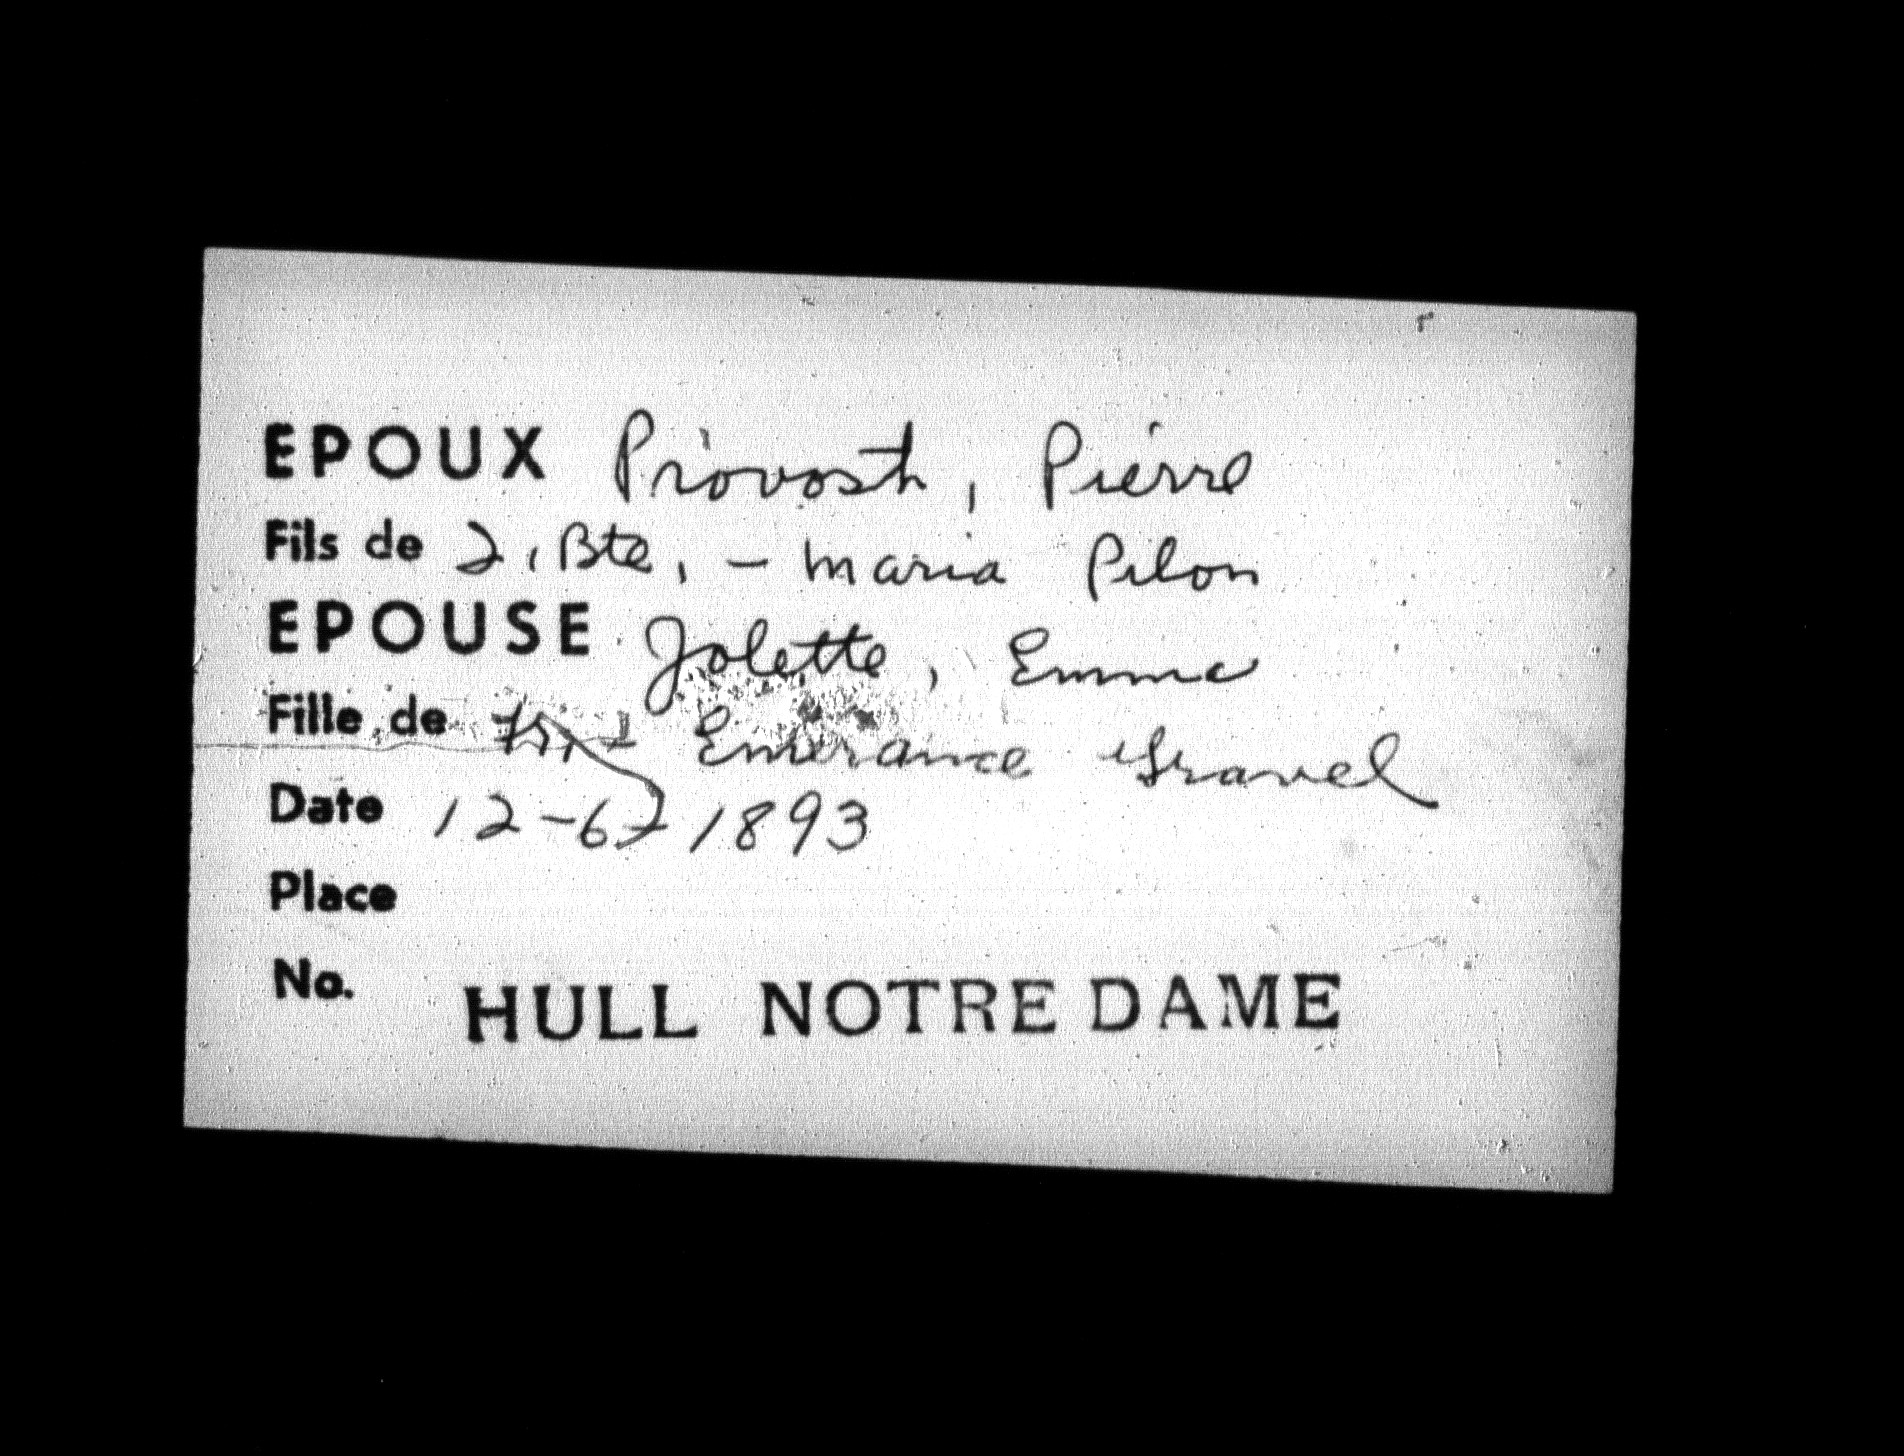 EPOUX Provost, Pierre
Fils de J. Bte, - Maria Pilon
EPOUSE Jolette, Emma
Fille de - Emerance Gravel
Date 12-6-1893
Place
No.
HULL NOTRE DAME